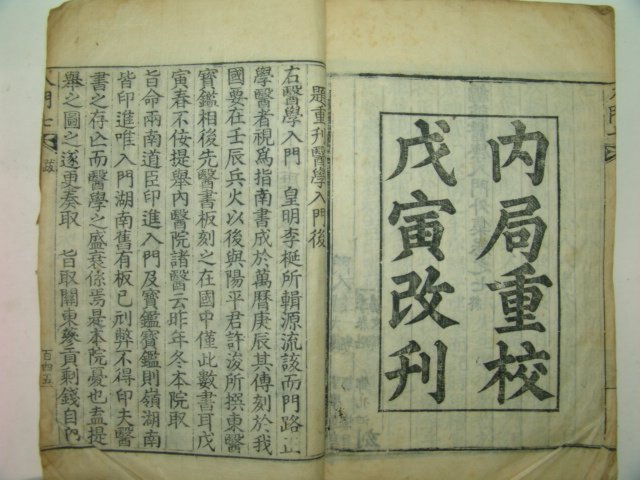 內局重校
戊寅改刊
題重刊醫學入門後
右醫學入門 皇明李梴所輯源流該而門路正
學醫者視爲指南書成於萬曆庚辰其傳刻於我
國要在壬辰兵火以後與陽平君許浚所撰東醫
寶鑑相後先醫書板刻之在國中僅此數書耳戊
寅春不侫提舉內醫院諸醫云昨年冬本院取
旨命兩南道臣印進入門及寶鑑寶鑑則嶺湖南
皆印進唯入門湖南舊有板已刓弊不得印夫醫
書之存亡而醫學之盛衰係焉是本院憂也盍提
舉之圖之遂更奏取 旨取關東蔘貢剩錢自內
入門七
跋
百四五